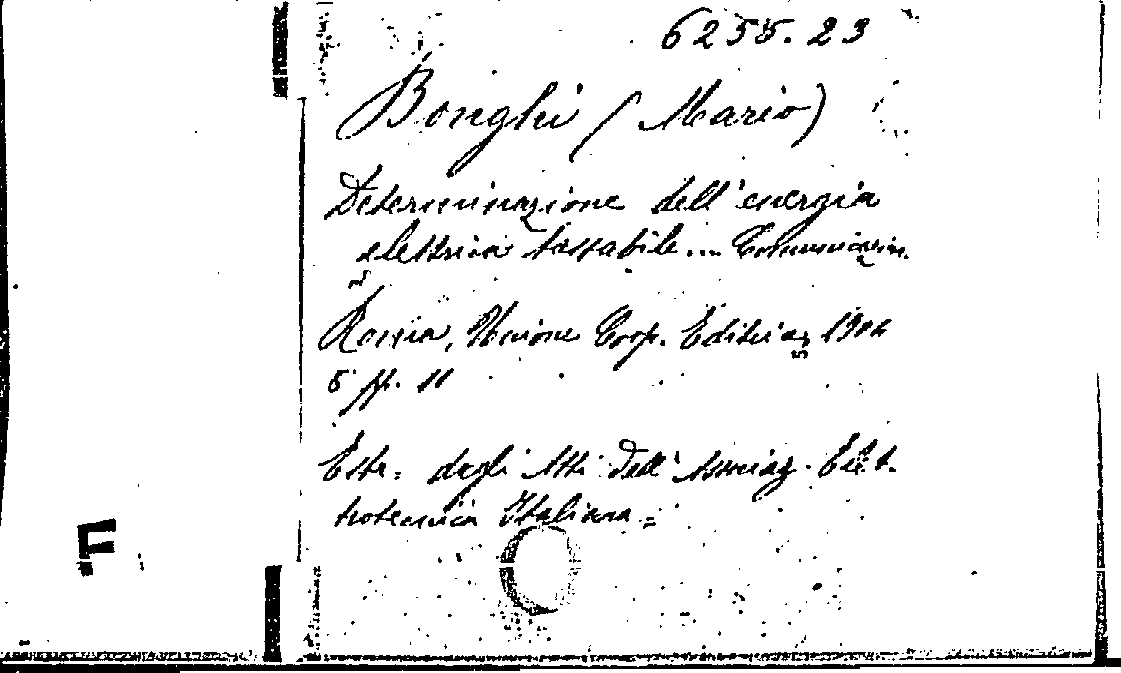 6255.23
Bonghi (Mario)
Determinazione dell'energia
elettrica tassabile... Comunicazion.
Roma, Unione Coop. Editrice, 1904
8° pp. 11
Estr. dagli Atti dell'Associaz. Elet-
trotecnica Italiana.
F